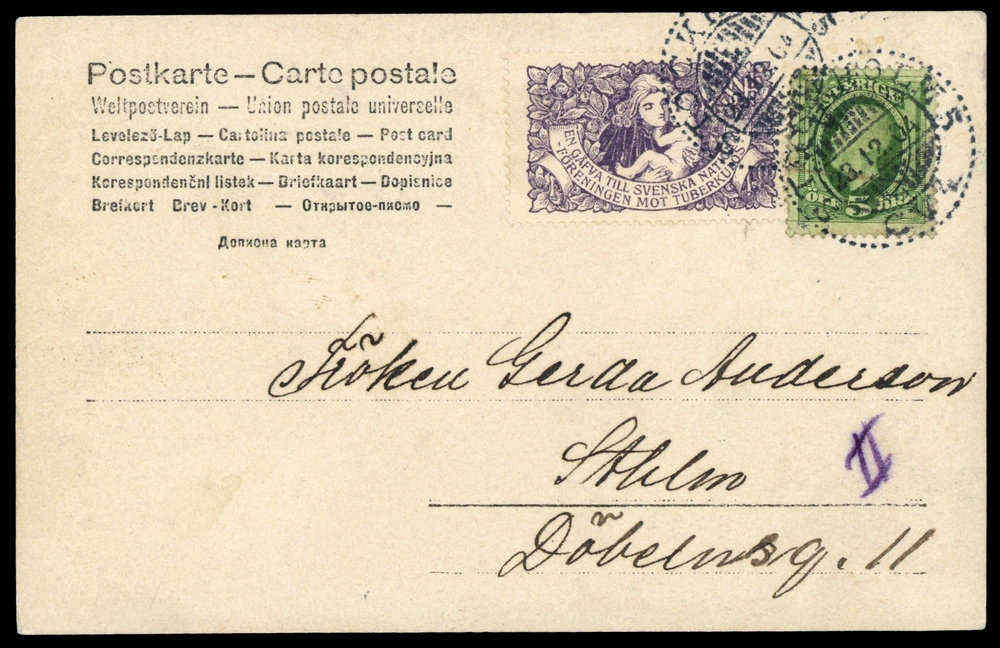 Postkarte — Carte postale
Weltpostverein — Union postale universelle
Levelező-Lap — Cartolina postale — Post card
Correspondenzkarte — Karta korespondencyjna
Korespondenční listek — Briefkaart — Dopisnice
Brefkort Brev-Kort — Открытое-письмо —
Дописна карта
EN GÅFVA TILL SVENSKA
FÖRENINGEN MOT TUBERKULOS
SVERIGE
5
ÖRE
Fröken Gerda Anderson
Sthlm
II
Döbelnsg. 11